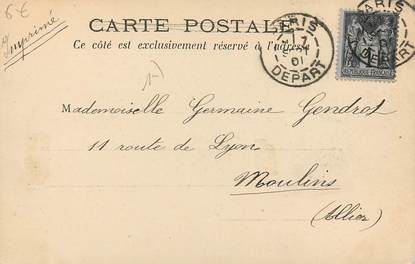 6€
Imprimé
CARTE POSTALE
Ce côté est exclusivement réservé à l'adresse
PARIS
DEPART
01
PARIS
DEPART
REPUBLIQUE FRANÇAISE
Mademoiselle Germaine Gendrot
11 route de Lyon
Moulins
(Allier)